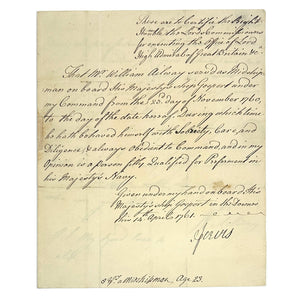 These are to Certifie the Right
Honble the Lords Commissioners
for executing the Office of Lord
High Admiral of Great Britain &c.
That Mr. William Alway served as Midship
man on board His Majesty's Ship Gosport under
my Command from the 23. day of November 1760,
to the day of the date hereof, During which time
he hath behaved himself with Sobriety, Care, and
Diligence, & always obedient to Command, and in my
Opinion is a person fitly Qualified for Preferment in
his Majesty's Navy.
Given under my hand on board His
Majesty's Ship Gosport in the Downes
this 14 April 1761.
Jervis
a Midshipman, Age 23.